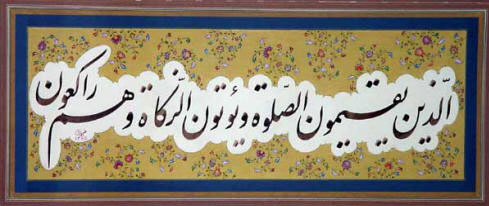 الّذين يقيمون الصّلوة ويؤتون الزّكاة وهم راكعون